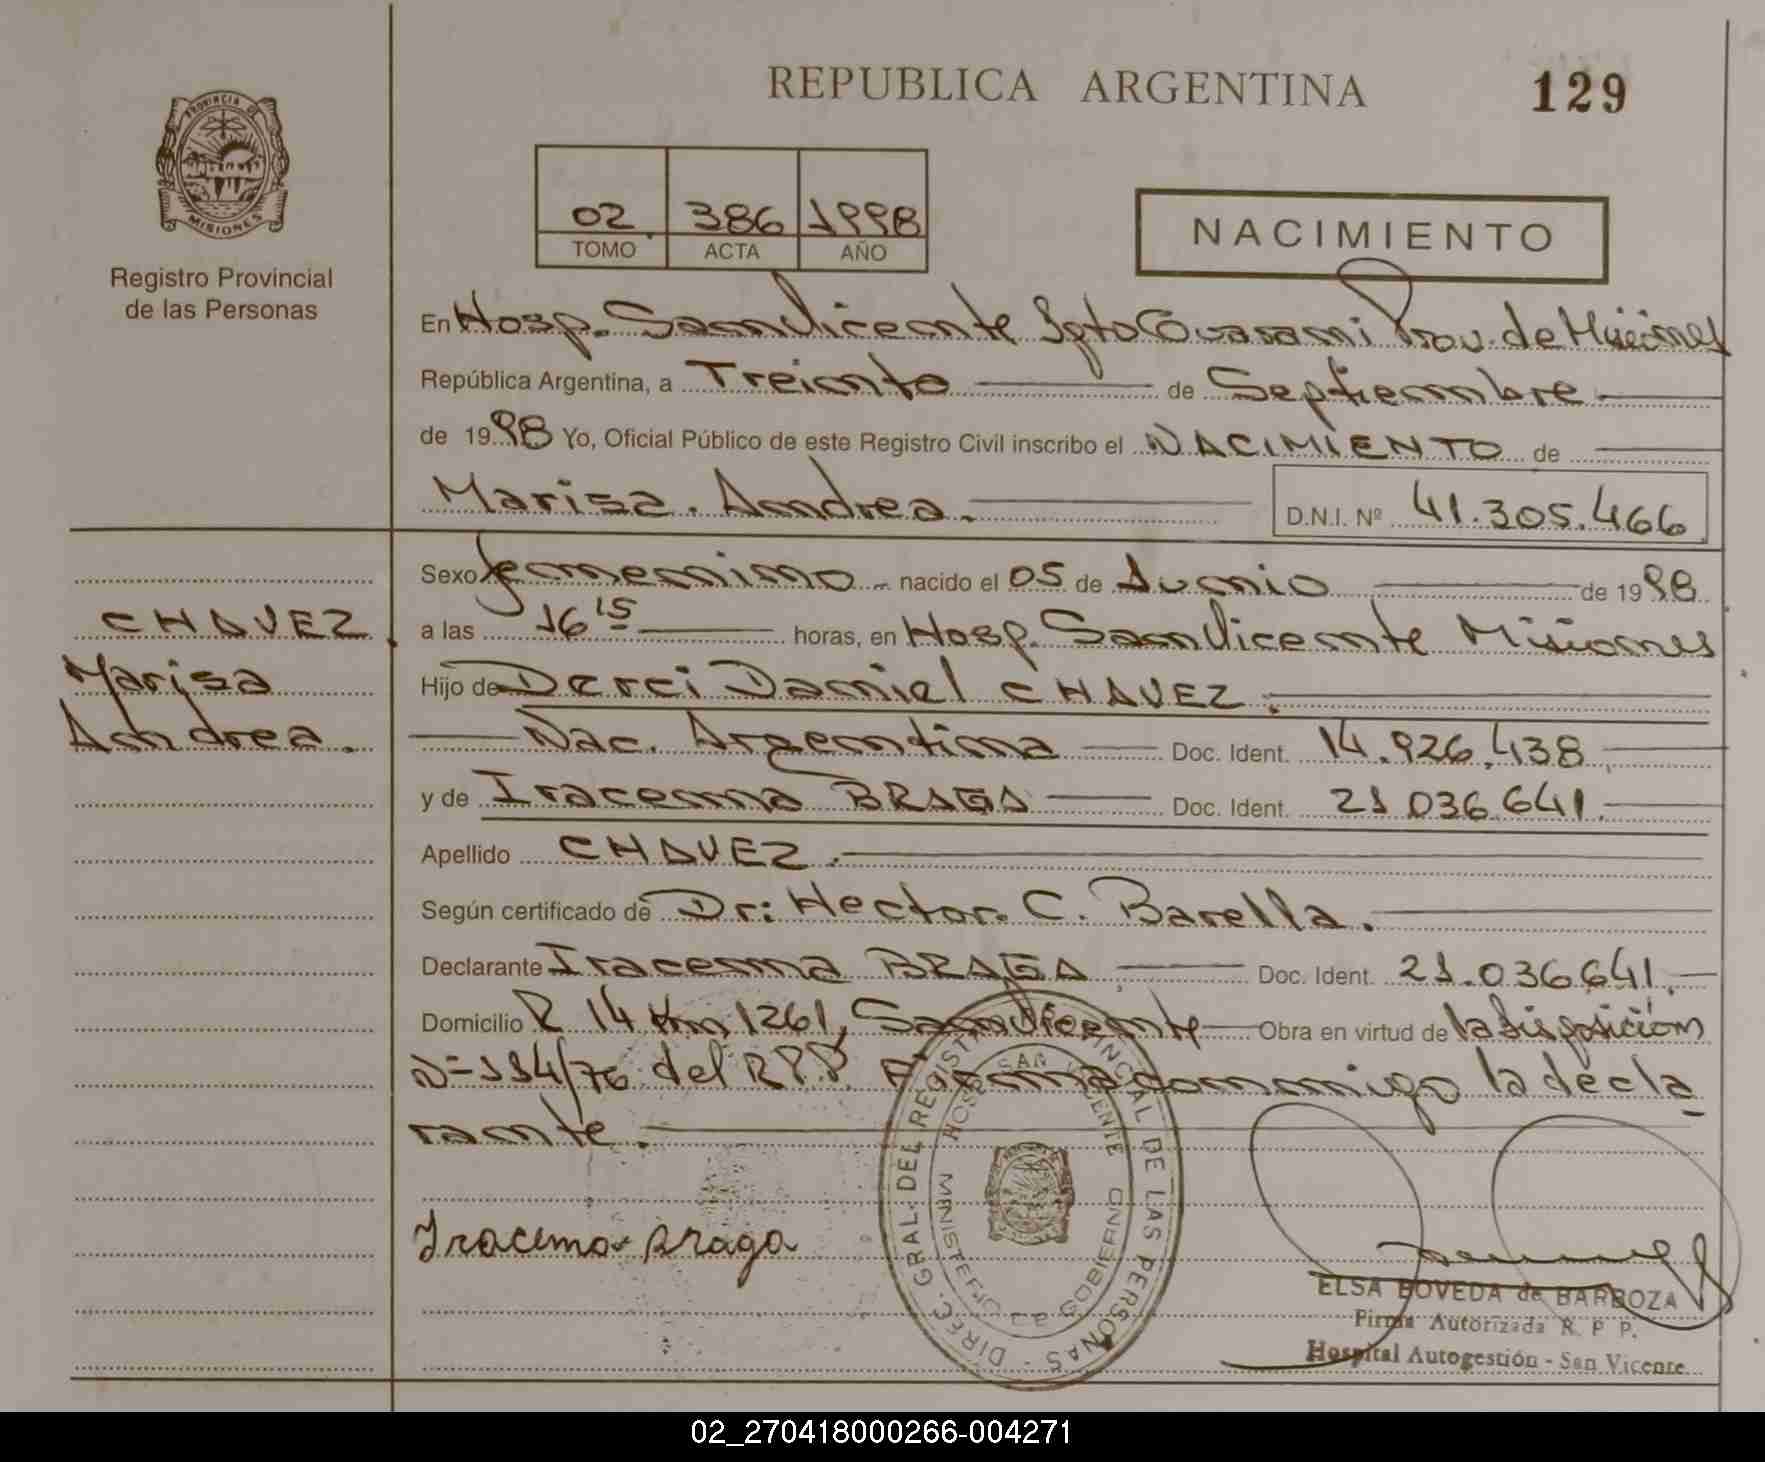 REPUBLICA ARGENTINA
129
PROVINCIA DE
MISIONES
Registro Provincial
de las Personas
02. 386 1998
TOMO ACTA AÑO
NACIMIENTO
En Hosp. San Vicente Dpto Guarani Prov. de Misiones
República Argentina, a Treinta de Septiembre
de 1998 Yo, Oficial Público de este Registro Civil inscribo el NACIMIENTO de
Marisa. Andrea.
D.N.I. Nº 41.305.466
CHAVEZ.
Marisa
Andrea.
Sexo femenino nacido el 05 de Junio de 1998
a las 16 15 horas, en Hosp. San Vicente Misiones
Hijo de Derci Daniel CHAVEZ.
Nac. Argentina Doc. Ident. 14.926.438
y de Iracema BRAGA Doc. Ident. 21.036.641.
Apellido CHAVEZ.
Según certificado de Dr: Hector. C. Barella.
Declarante Iracema BRAGA Doc. Ident. 21.036.641.
Domicilio R 14 Km 1261, San Vicente Obra en virtud de la disposición
Nº 114/76 del R.P.P. Firma conmigo la decla
rante.
Iracema Braga
DIREC. GRAL. DEL REGISTRO PROVINCIAL DE LAS PERSONAS -
HOSP. SAN VICENTE
MINISTERIO DE GOBIERNO
ELSA BOVEDA de BARBOZA
Firma Autorizada R. P. P.
Hospital Autogestión - San Vicente
02_270418000266-004271